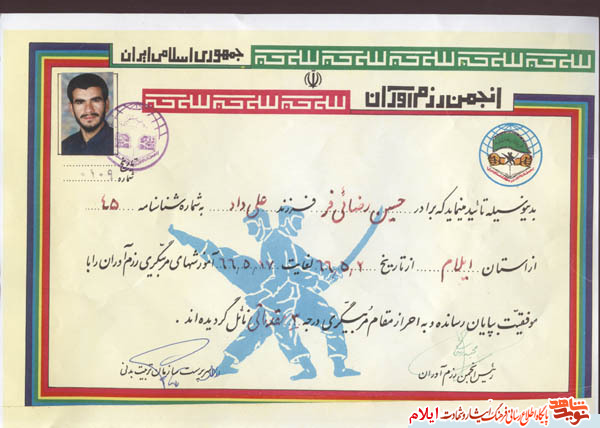 جمهوری اسلامی ایران
انجمن رزم آوران
تاریخ
شماره ۰۱۰۹
بدینوسیله تائید مینماید که برادر حسین رضائی فر فرزند علی داد به شماره شناسنامه ۴۵
از استان ایلام از تاریخ ۶۶٫۵٫۲ لغایت ۶۶٫۵٫۱۷ آموزشهای مربیگری رزم آوران را با
موفقیت بپایان رسانده و به احراز مقام مربیگری درجه ۳ مقدماتی نائل گردیده اند .
رئیس انجمن رزم آوران
سرپرست سازمان تربیت بدنی
نوید شاهد
پایگاه اطلاع رسانی فرهنگ ایثار و شهادت ایلام